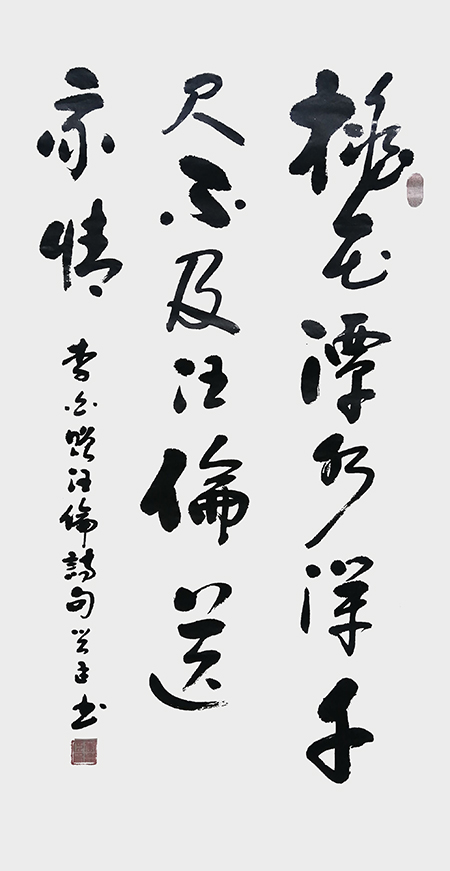 桃花潭水深千
尺不及汪倫送
我情
李白贈汪倫詩句书